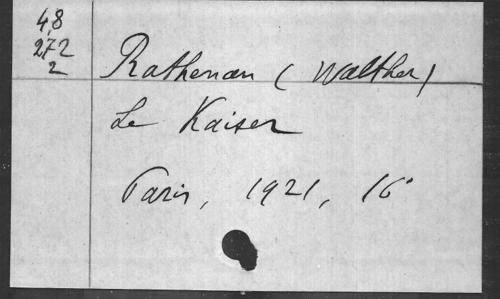 48
272
2
Rathenau (Walther)
Le Kaiser
Paris, 1921, 16°